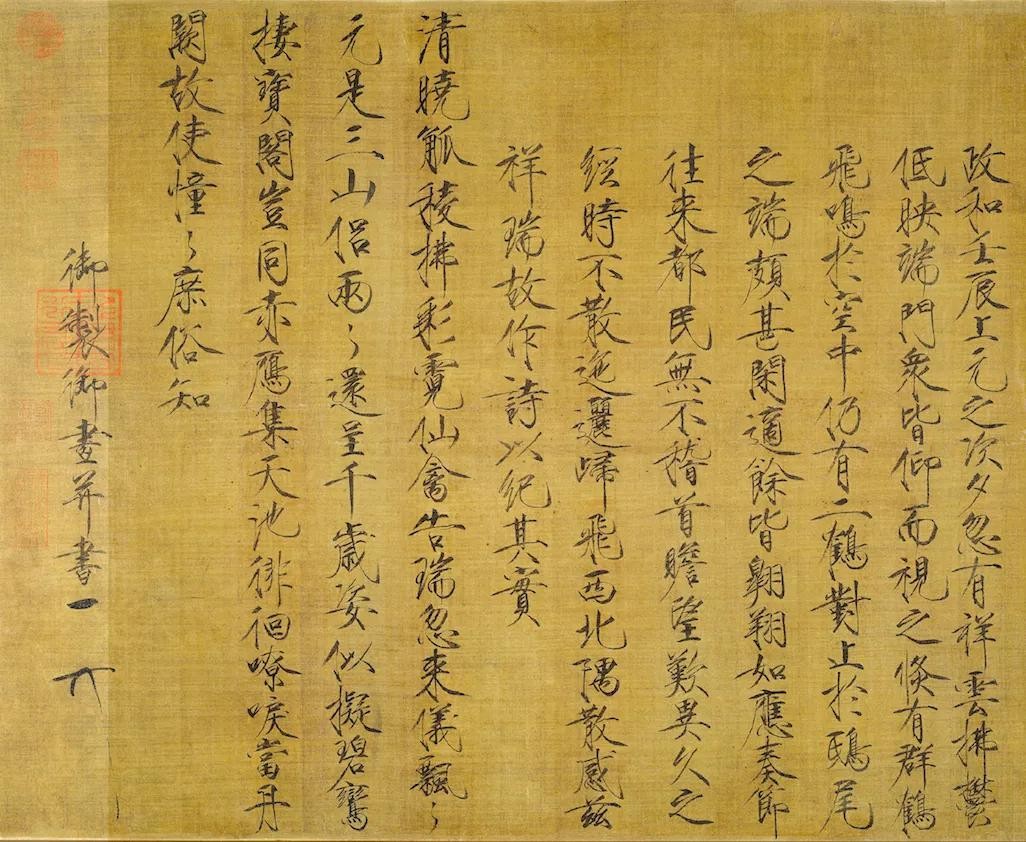 政和壬辰上元之次夕忽有祥雲拂鬱
低映端門眾皆仰而視之倏有群鶴
飛鳴於空中仍有二鶴對止於鴟尾
之端頗甚閑適餘皆翱翔如應奏節
往来都民無不稽首瞻望歎異久之
經時不散迤邐歸飛西北隅散感茲
祥瑞故作詩以紀其實
清曉觚稜拂彩霓仙禽告瑞忽来儀飄〻
元是三山侶兩〻還呈千歲姿似擬碧鸞
棲寶閣豈同赤鴈集天池徘徊嘹唳當丹
闕故使憧〻庶俗知
御製御畫并書